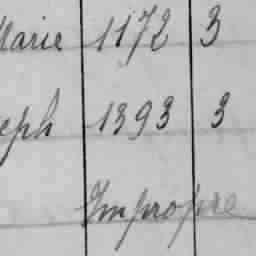 Marie 1172 3
eph 1393 3
Impropre